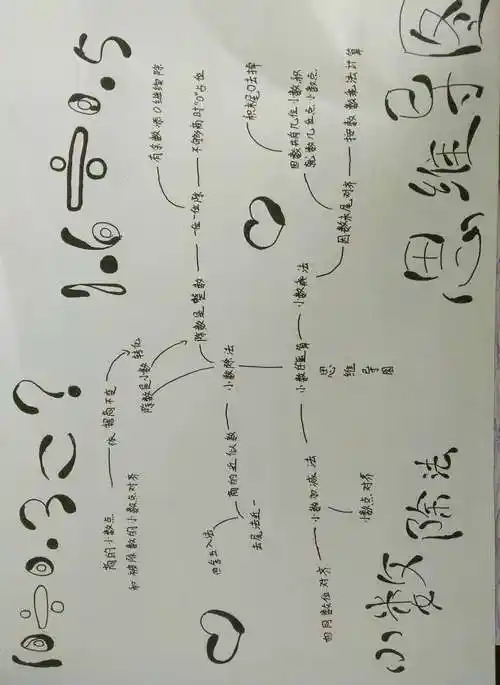 10÷0.3=?
1.6÷0.5
商的小数点
和被除数的小数点对齐
依据商不变
除数是小数
转化
除数是整数
一位一位除
有余数添0继续除
不够商时"0"占位
四舍五入法
去尾法近一
商的近似数
小数除法
积末尾0去掉
因数共有几位小数积
就数几位点小数点
相同数位对齐
小数加减法
小数点对齐
小数的运算
思维导图
小数乘法
因数末尾对齐
按整数乘法计算
小数除法
思维导图